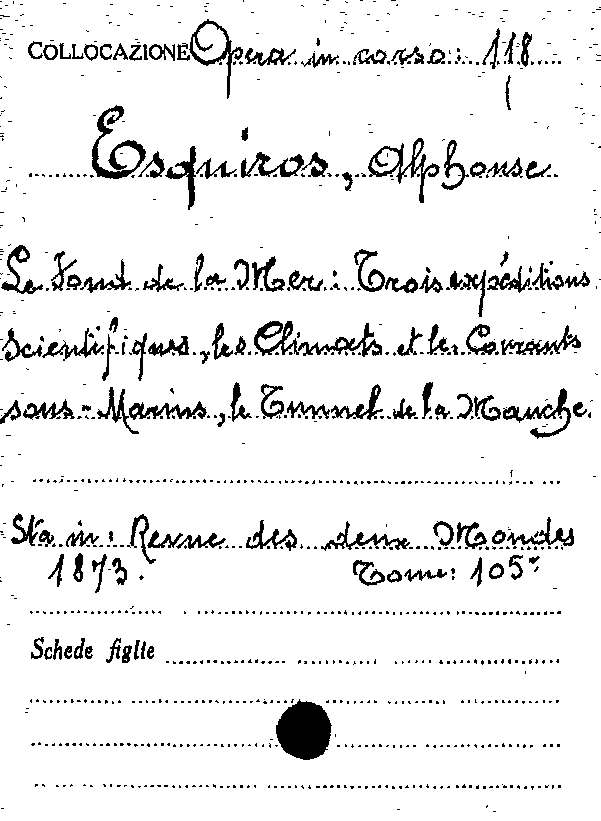 COLLOCAZIONE Opera in corso: 118
Esquiros, Alphonse
Le Fond de la Mer: Trois expéditions
scientifiques, les Climats et les Courants
sous-Marins, le Tunnel de la Manche.
Sta in: Revue des deux Mondes
1873. Tome: 105°
Schede figlie